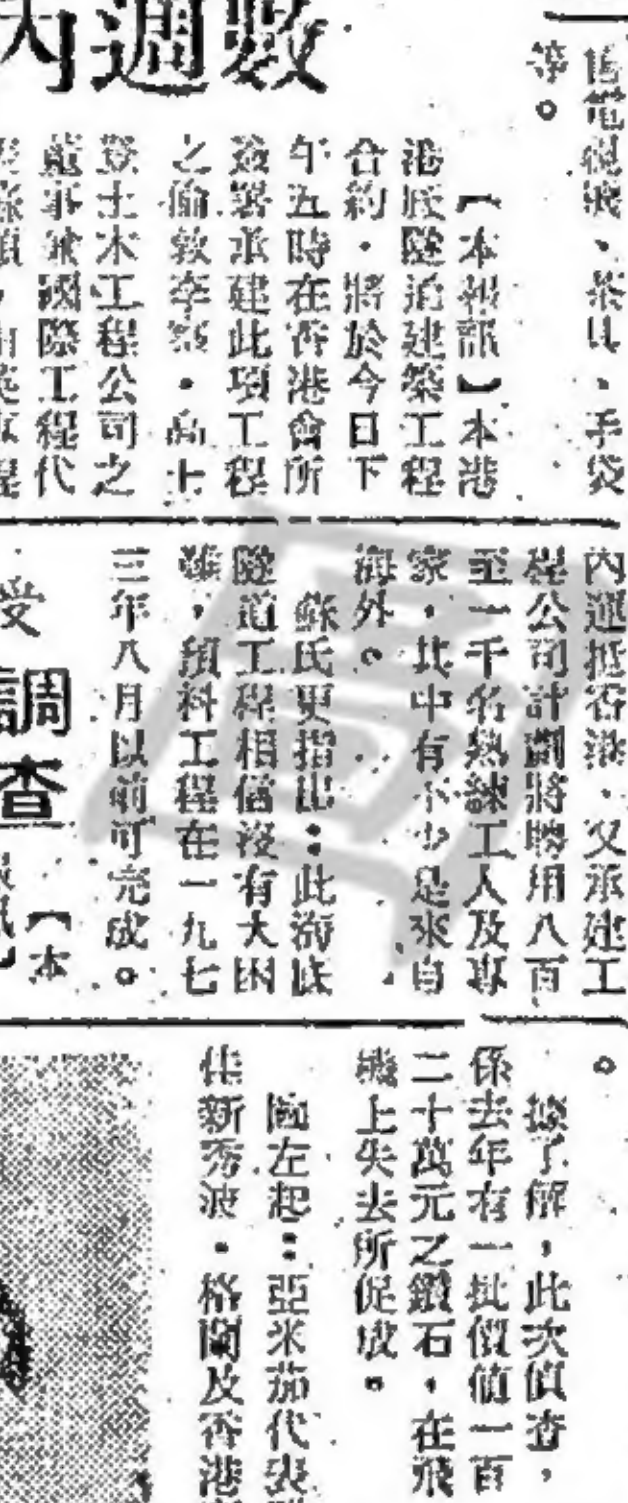 數週內
舊電視機、茶具、手袋
等。
【本報訊】本港
港底隧道建築工程
合約,將於今日下
午五時在香港會所
簽署承建此項工程
之倫敦李察・高士
登土木工程公司之
董事兼國際工程代
內運抵香港,又承建工
程公司計劃將聘用八百
至一千名熟練工人及專
家,其中有不少是來自
海外。
蘇氏更指出:此海底
隧道工程相信沒有大困
難,預料工程在一九七
三年八月以前可完成。
受
調查
【本
。
據了解,此次偵查,
係去年有一批價值一百
二十萬元之鑽石,在飛
機上失去所促成。
圖左起:亞米茄代表
佳新秀波・格蘭及香港